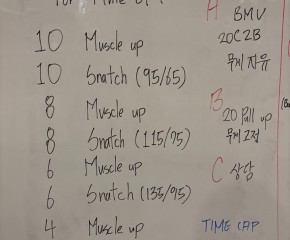 For Time
10 Muscle up
10 Snatch (95/65)
8 Muscle up
8 Snatch (115/95)
6 Muscle up
6 Snatch (135/95)
4 Muscle up
A BMV
20C2B
무게 자유
B
20 Pull up
무게 고정
C 상담
TIME CAP